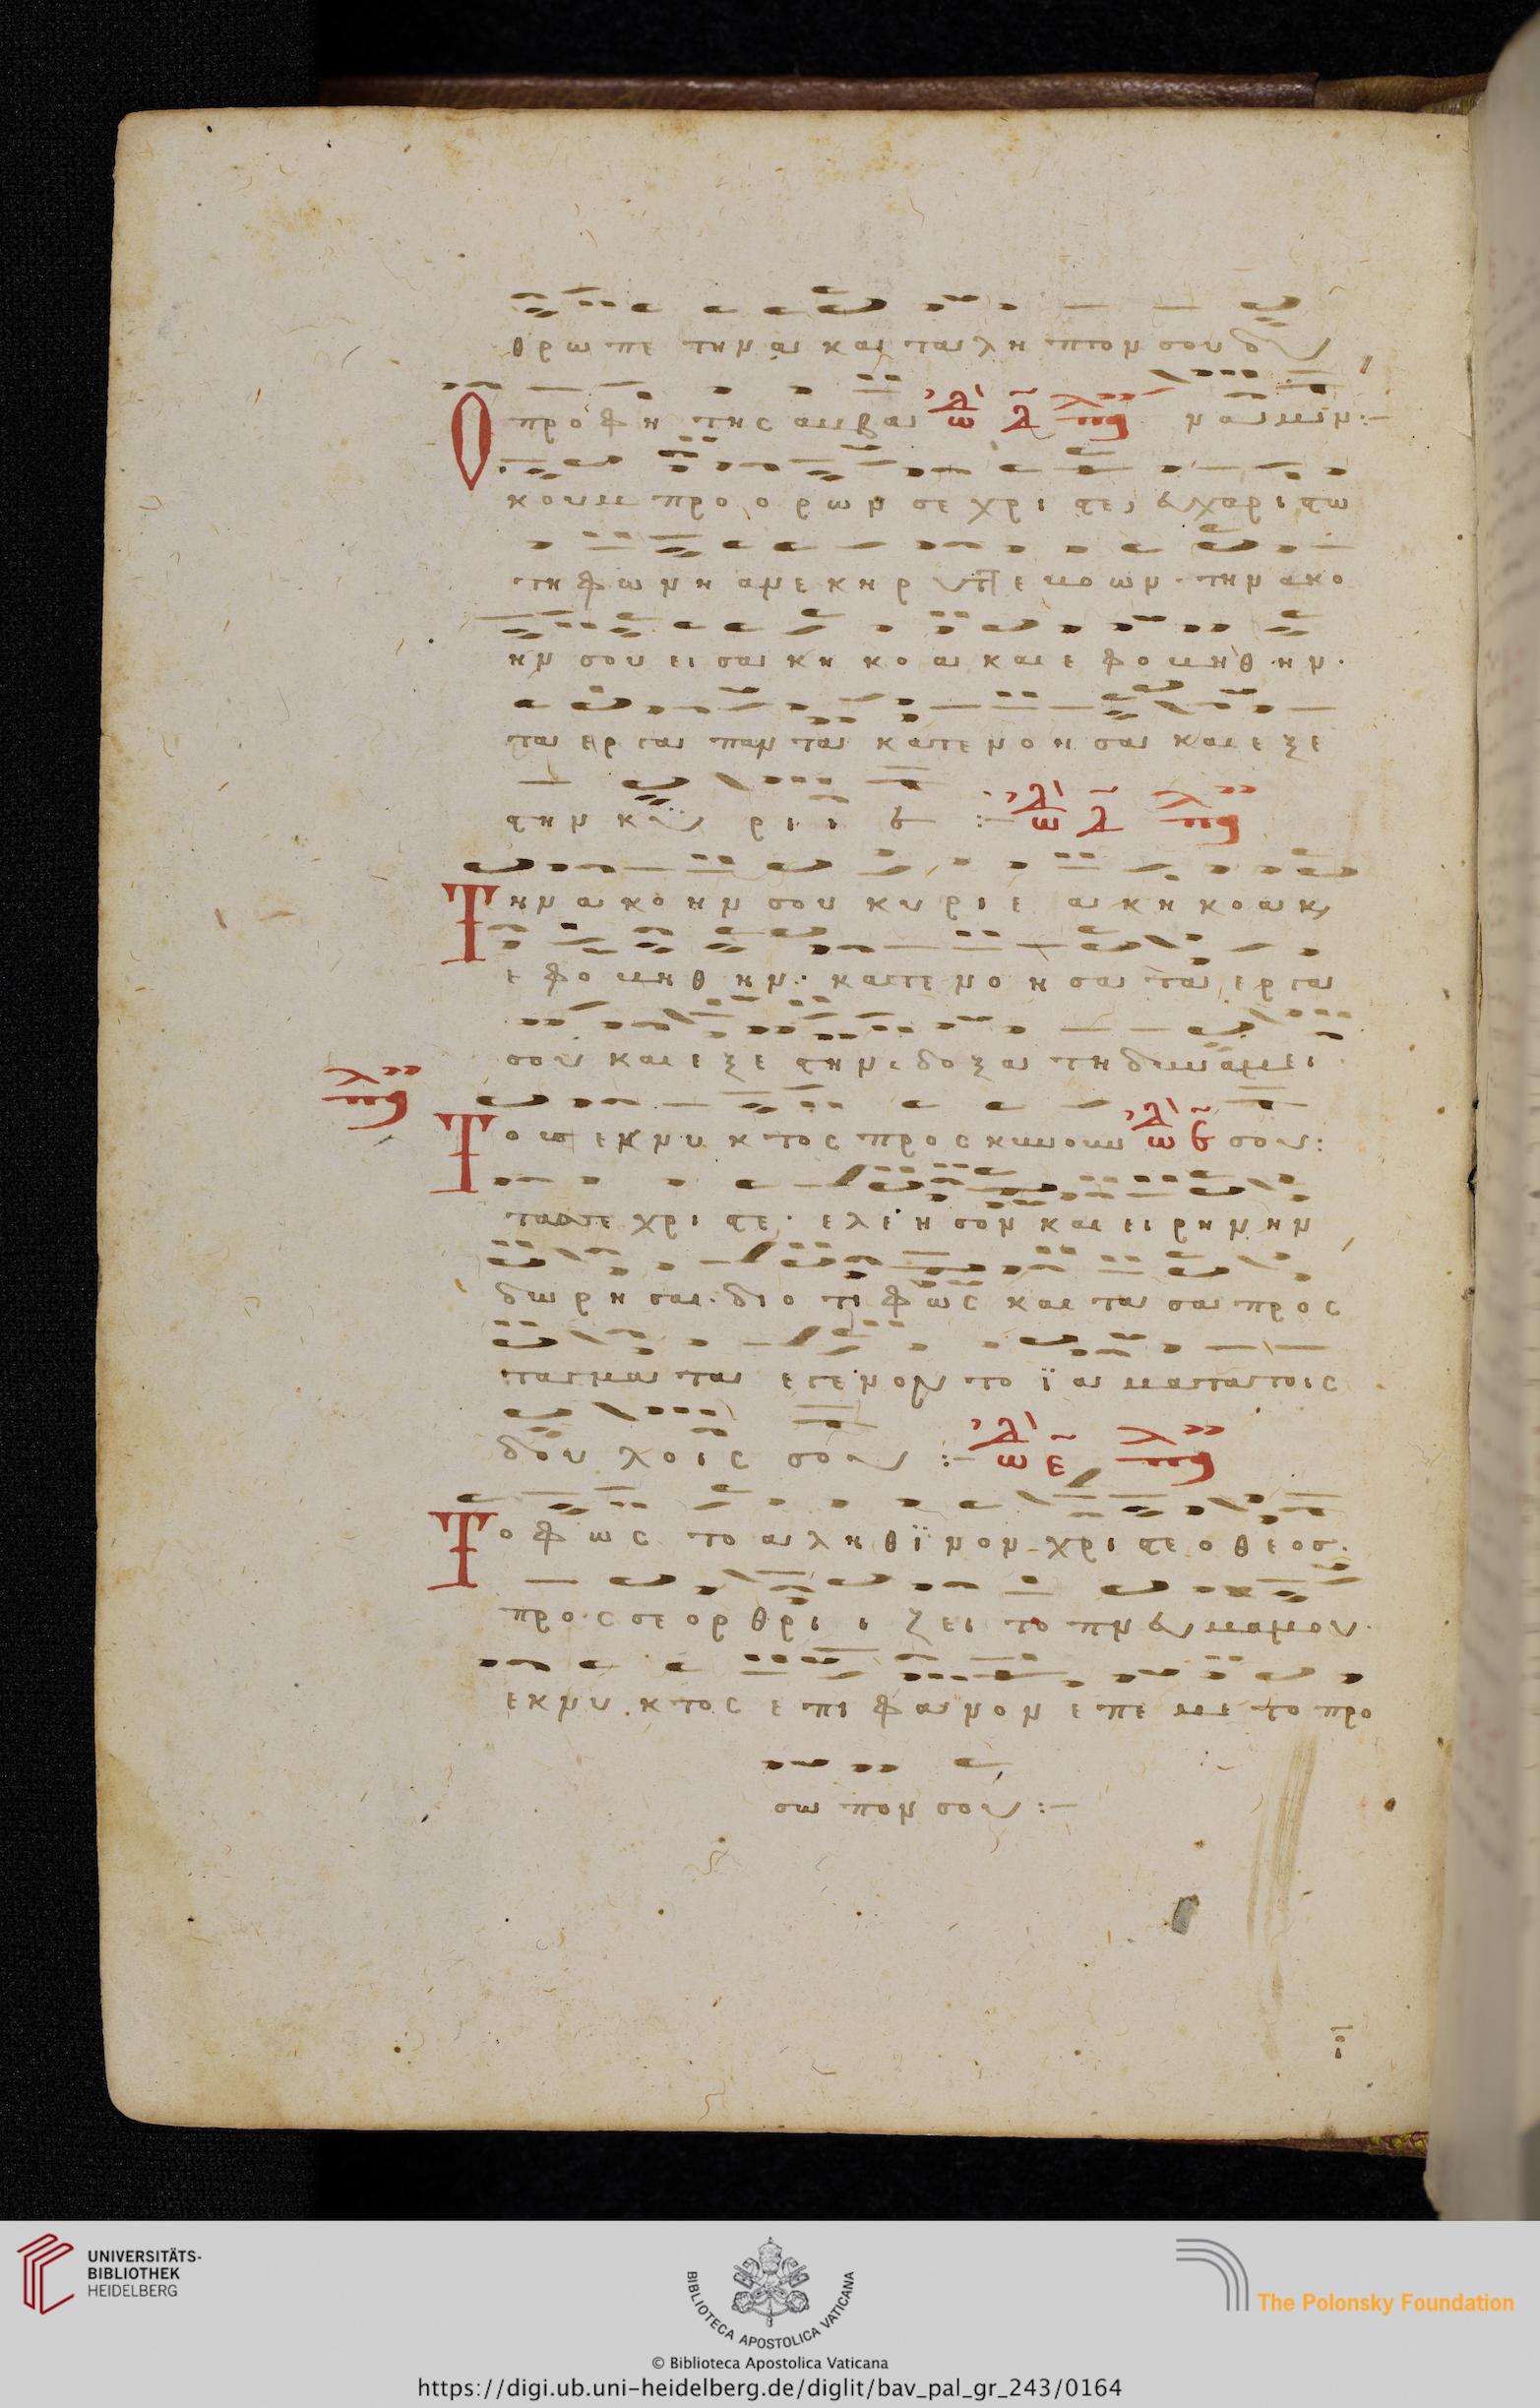 θρωπε την α κα τα λη πτον σου δυ
Ο προφη της αμβα ᾠδ δ̄ ναμιν:–
κουμ προ ο ρων σε χρι στε, ευχαριστω
τη φω νη ανεκηρυττε βοων· την ακο
ην σου ει σα κη κο α και ε φο βηθην·
τα εργα παν τα κατενοησα και εξε
στην κυ ρι ι ε :– ᾠδ δ̄
Την α κο ην σου κυριε α κη κο α κ,
ε φο βηθην· κατενοησα τα εργα
σου και εξεστην, δοξα τη δυναμει
Το εκ νυκτος προσκυνουν ᾠδ ε̄ σου:
τας σε χριστε· ελεησον και ειρηνην
δωρησαι· διοτι φως και τα σα προς
ταγματα εγενον το ϊ α ματα τοις
δου λοις σου :– ᾠδ ε̄
Το φως το α λη θϊ νον χριστε ο θεος·
προς σε ορθρι ι ζει το πνευμα μου·
εκ νυκτος επιφανον επ ε με το προ
σω πον σου :–
UNIVERSITÄTS-
BIBLIOTHEK
HEIDELBERG
BIBLIOTECA APOSTOLICA VATICANA
The Polonsky Foundation
© Biblioteca Apostolica Vaticana
https://digi.ub.uni-heidelberg.de/diglit/bav_pal_gr_243/0164